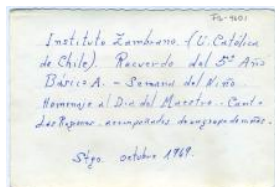 FB-9001
Instituto Zambrano. (U. Católica
de Chile). Recuerdo del 5º Año
Básico A. - Semana del Niño.
Homenaje al Día del Maestro. - Canta
Las Reginas, acompañadas de un grupo de niños.
Stgo. octubre 1969.